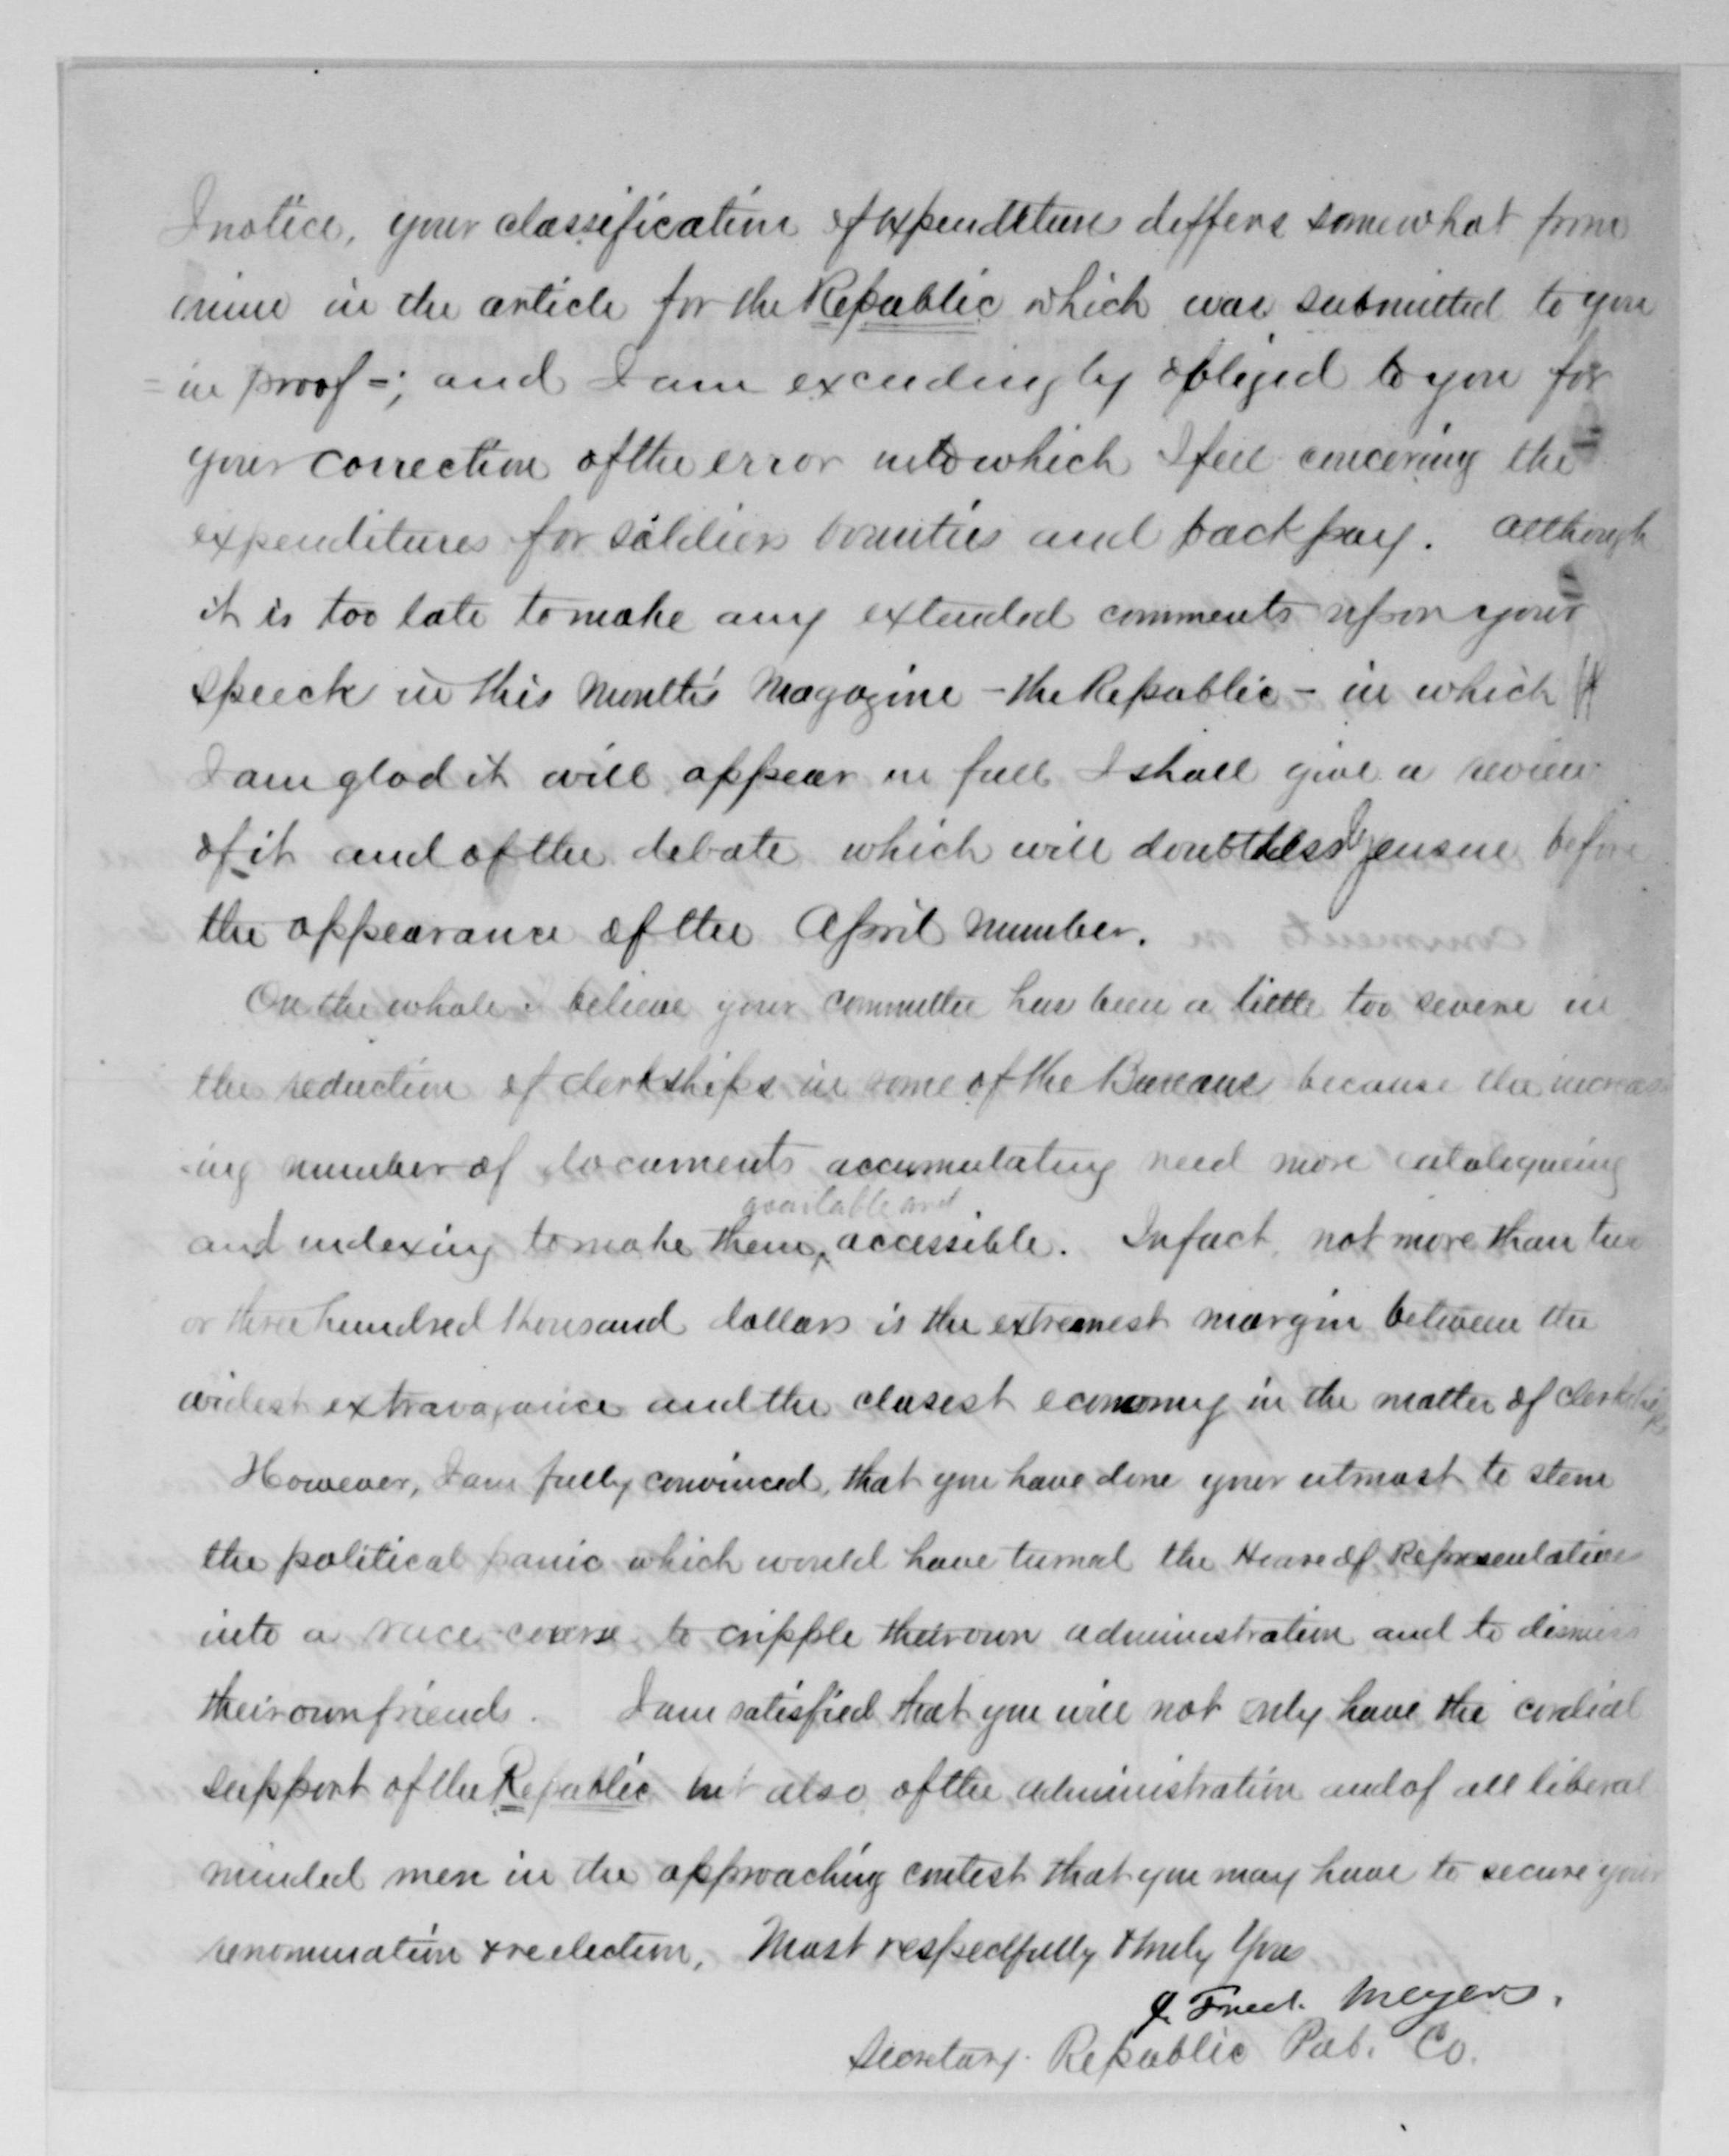 I notice, your classification of expenditures differs somewhat from
mine in the article for the Republic which was submitted to you
= in proof =; and I am exceedingly obliged to you for
your correction of the error into which I fell concering the
expenditures for soldiers bounties and back pay. Although
it is too late to make any extended comments upon your
speech in this month's Magazine - the Republic - in which
I am glad it will appear in full I shall give a review
of it and of the debate which will doubtless ensue before
the appearance of the April number.
On the whole I believe your committee has been a little too severe in
the reduction of clerkships in some of the Bureaus because the increas
-ing number of documents accumulating need more catalogueing
available and
and indexing to make them accessible. In fact, not more than two
or three hundred thousand dollars is the extremest margin between the
widest extravagance and the closest economy in the matter of clerkships
However, I am fully convinced, that you have done your utmost to stem
the political panic which would have turned the House of Representatives
into a race course to cripple their own administration and to dismiss
their own friends. I am satisfied that you will not only have the cordial
support of the Republic but also of the administration and of all liberal
minded men in the approaching contest that you may have to secure your
renomination & reelection, Most respectfully & truly Yours
J. Fred. Meyers.
Secretary. Republic Pub. Co.